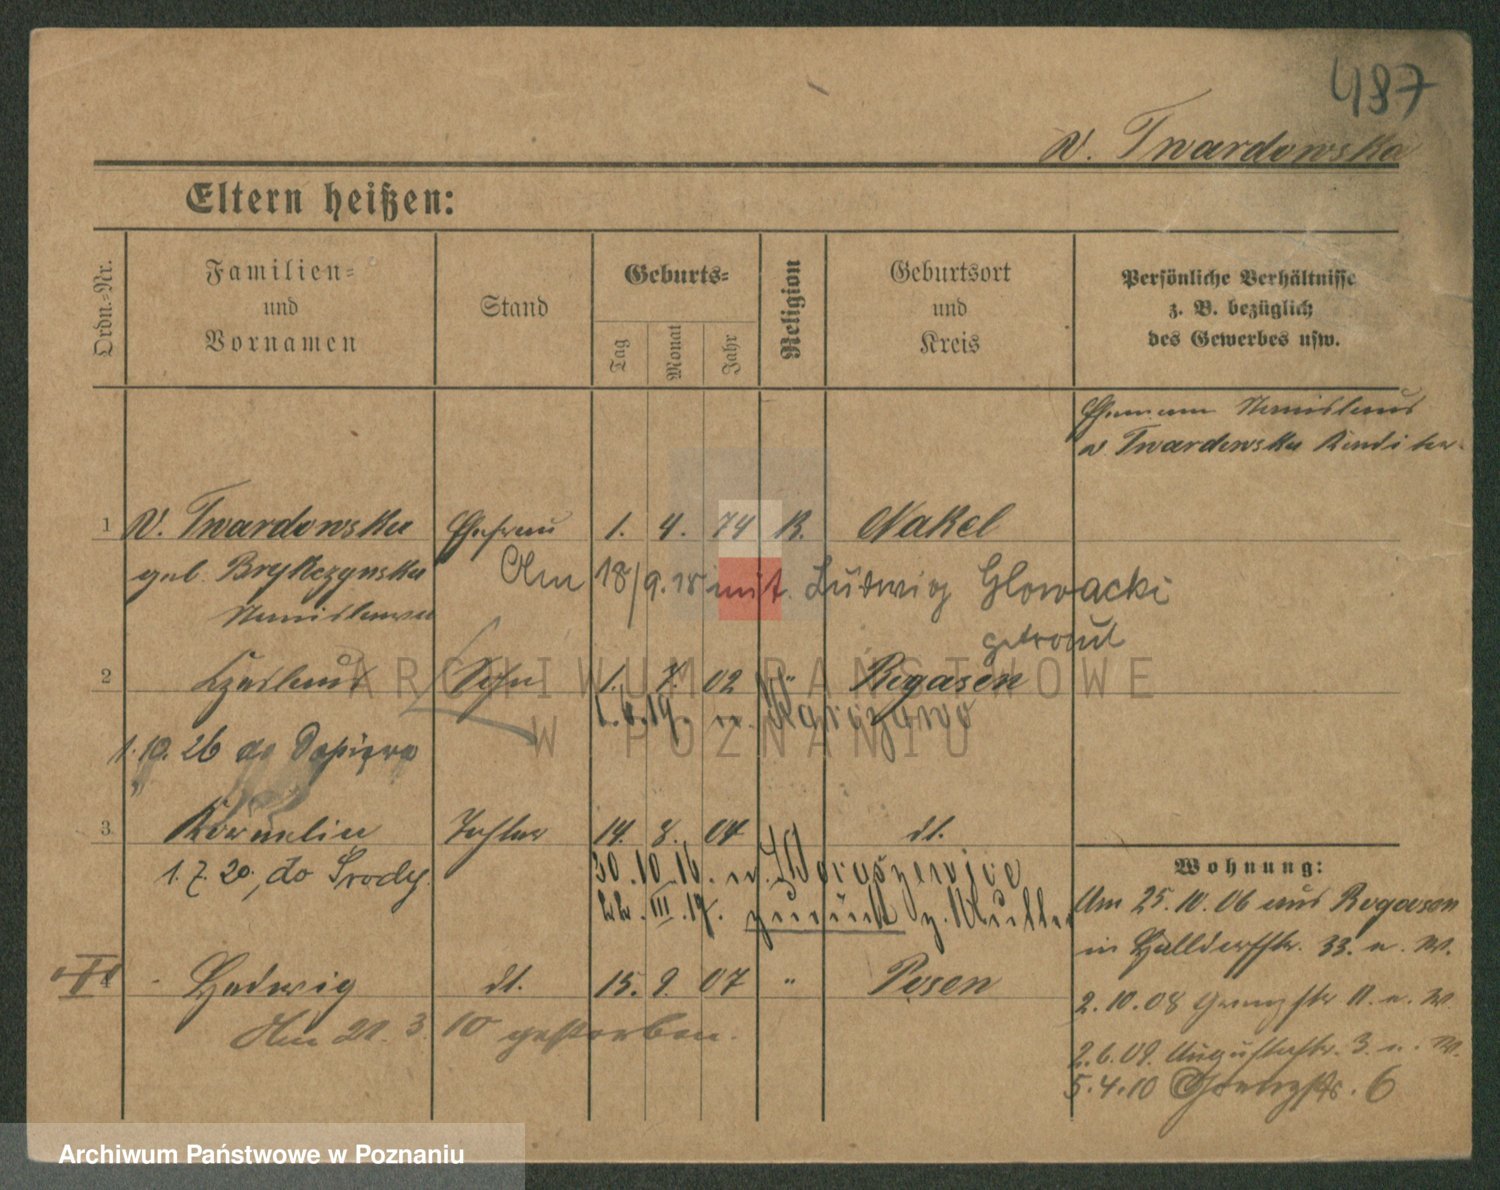 487
v. Twardowska
Eltern heißen:
Ordn.-Nr.
Familien-
und
Vornamen
Stand
Geburts-
Tag
Monat
Jahr
Religion
Geburtsort
und
Kreis
Persönliche Verhältnisse
z. B. bezüglich
des Gewerbes usw.
Ehemann Stanislaus
v Twardowski Konditor
1 v. Twardowska Ehefrau 1. 4. 74 K. Nakel
geb. Brykczynska
Am 18/9.18 mit Ludwig Glowacki
Stanislawa
getraut
2 Czeslaus Sohn 1. 7. 02 " Rogasen
1.6.19. n.
1.10.26 do Sapiera
3. Kornelia Tochter 14. 8. 04 dt.
1.7.20., do Srody.
30.10.16. n.
22.III.17. zurück z. Mutter
4 Hedwig dt. 15. 9. 07 " Posen
Am 21.3.10 gestorben.
Wohnung:
Am 25.10.06 aus Rogasen
in Halldorfstr. 33. n. W.
2.10.08 Grenzstr 11. n. W.
2.6.09. Augustastr. 3. n. W.
5.4.10 Grenzstr. 6
ARCHIWUM PAŃSTWOWE
W POZNANIU
Archiwum Państwowe w Poznaniu